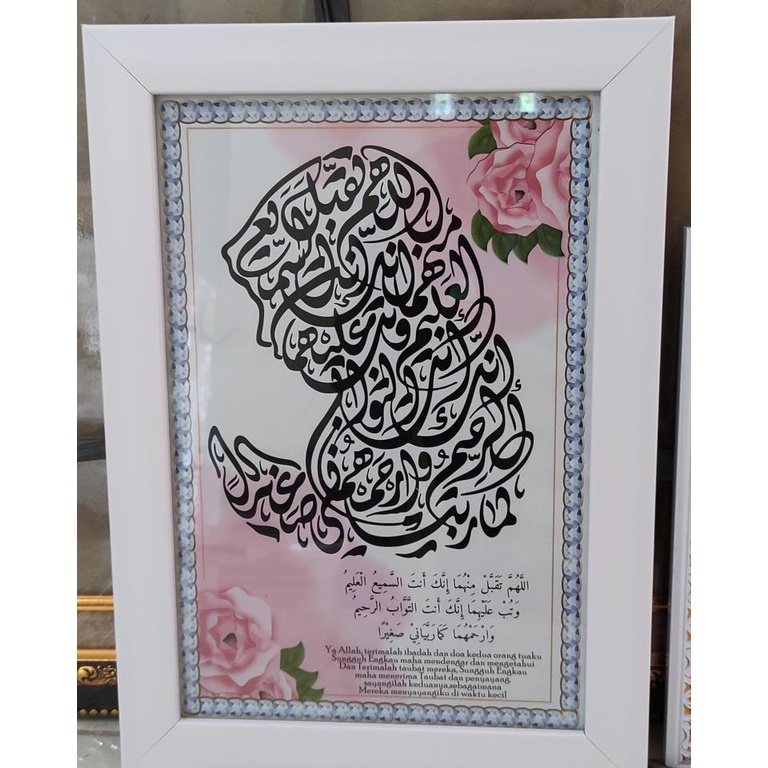 اللَّهُمَّ تَقَبَّلْ مِنْهُمَا إِنَّكَ أَنْتَ السَّمِيعُ الْعَلِيمُ
وَتُبْ عَلَيْهِمَا إِنَّكَ أَنْتَ التَّوَّابُ الرَّحِيمُ
وَارْحَمْهُمَا كَمَا رَبَّيَانِيْ صَغِيْرًا
Ya Allah, terimalah ibadah dan doa kedua orang tuaku
Sungguh Engkau maha mendengar dan mengetahui
Dan Terimalah taubat mereka, Sungguh Engkau
maha menerima Taubat dan penyayang.
sayangilah keduanya,sebagaimana
Mereka menyayangiku di waktu kecil